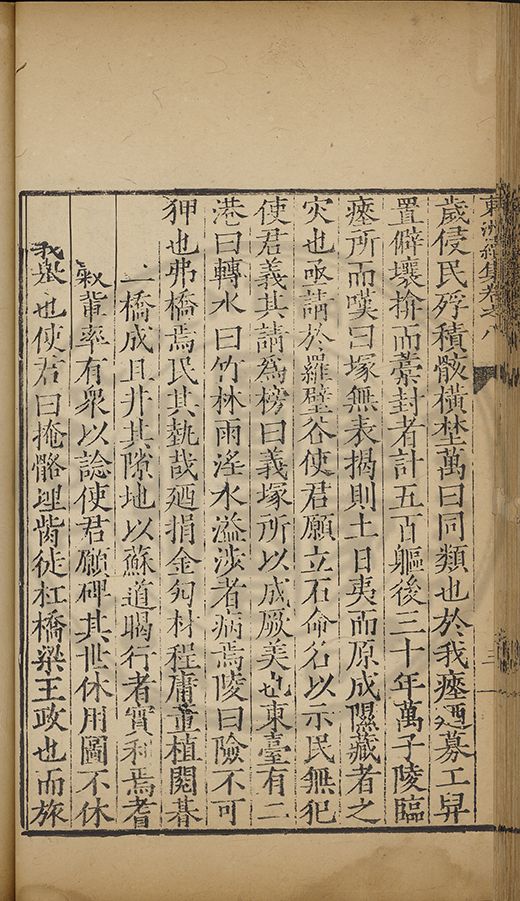 東洲續集卷之八
歲侵民殍積骸橫埜萬曰同類也於我瘞廼募工舁
置僻壤揜而蘽封者計五百軀後三十年萬子陵臨
瘞所而嘆曰塚無表揭則土日夷而原成隰藏者之
灾也亟請於羅璧谷使君願立石命名以示民無犯
使君義其請為榜曰義塚所以成厥美也東臺有二
港曰轉水曰竹林雨淫水溢涉者病焉陵曰險不可
狎也弗橋焉民其埶哉廼捐金匃材程庸董植閱朞
二橋成且井其隙地以蘇道暍行者實利焉耆
叙輩率有眾以諗使君願碑其世休用圖不休
哉是也使君曰掩骼埋胔徒杠橋梁王政也而旅